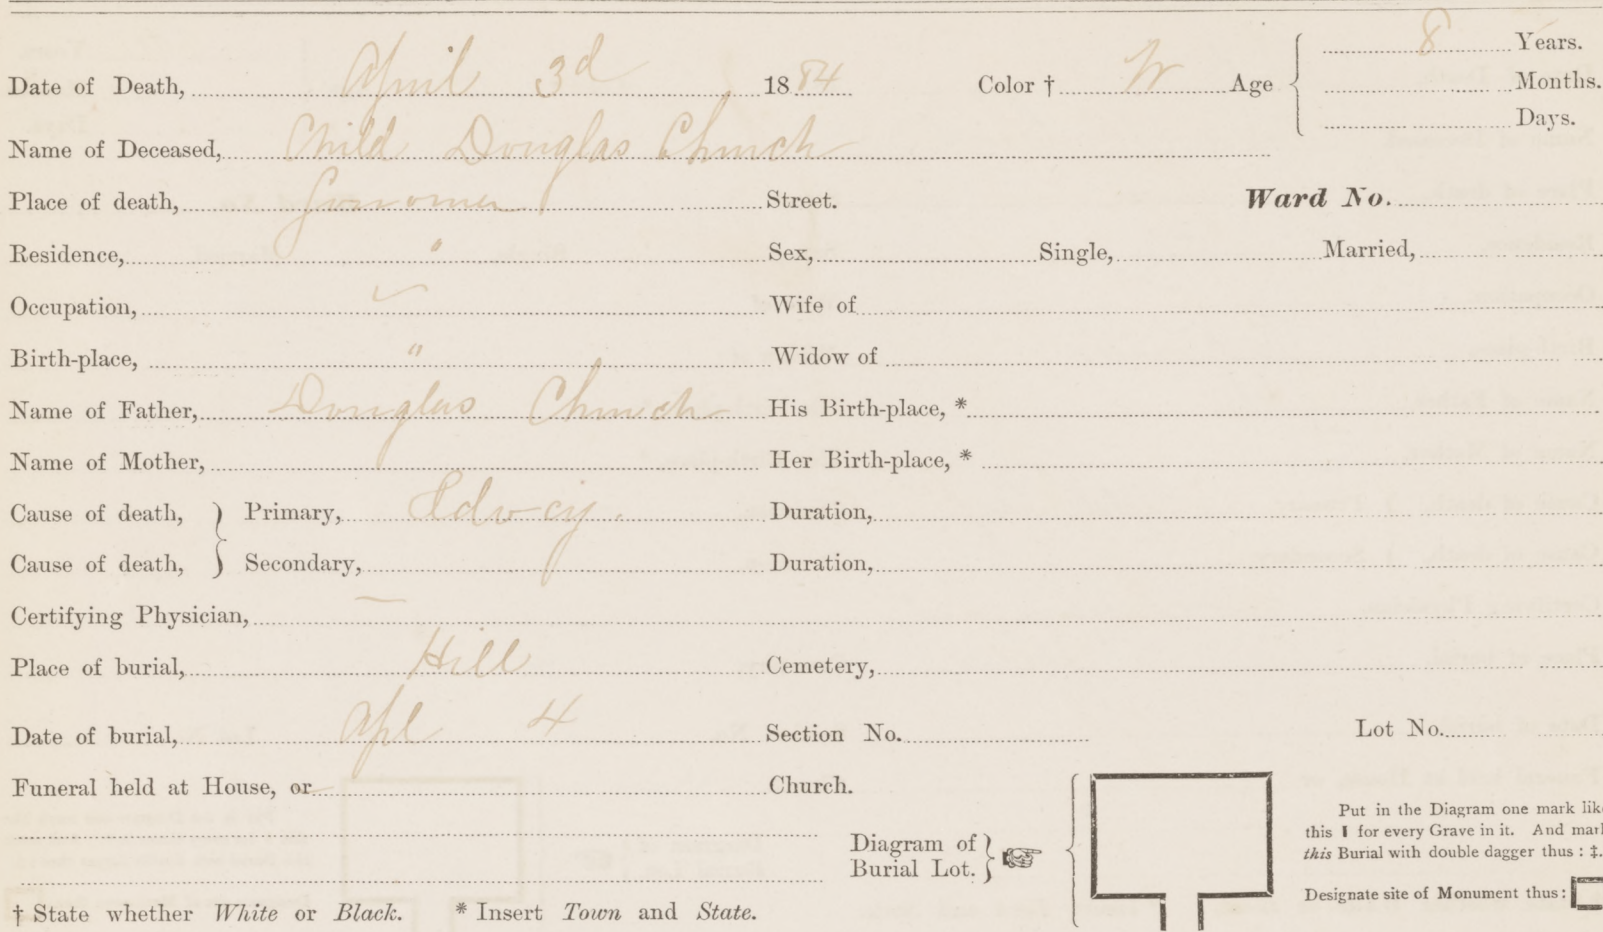 8 Years.
Date of Death, April 3d 1884 Color † W Age Months.
Days.
Name of Deceased, Child Douglas Church
Place of death, Street. Ward No.
Residence, " Sex, Single, Married,
Occupation, Wife of
Birth-place, " Widow of
Name of Father, Douglas Church His Birth-place, *
Name of Mother, Her Birth-place, *
Cause of death, } Primary, Duration,
Cause of death, } Secondary, Duration,
Certifying Physician, —
Place of burial, Hill Cemetery,
Date of burial, Apl 4 Section No. Lot No.
Funeral held at House, or Church.
Put in the Diagram one mark like
this ❙ for every Grave in it. And mark
Diagram of } this Burial with double dagger thus : ‡.
Burial Lot.
Designate site of Monument thus :
† State whether White or Black. * Insert Town and State.